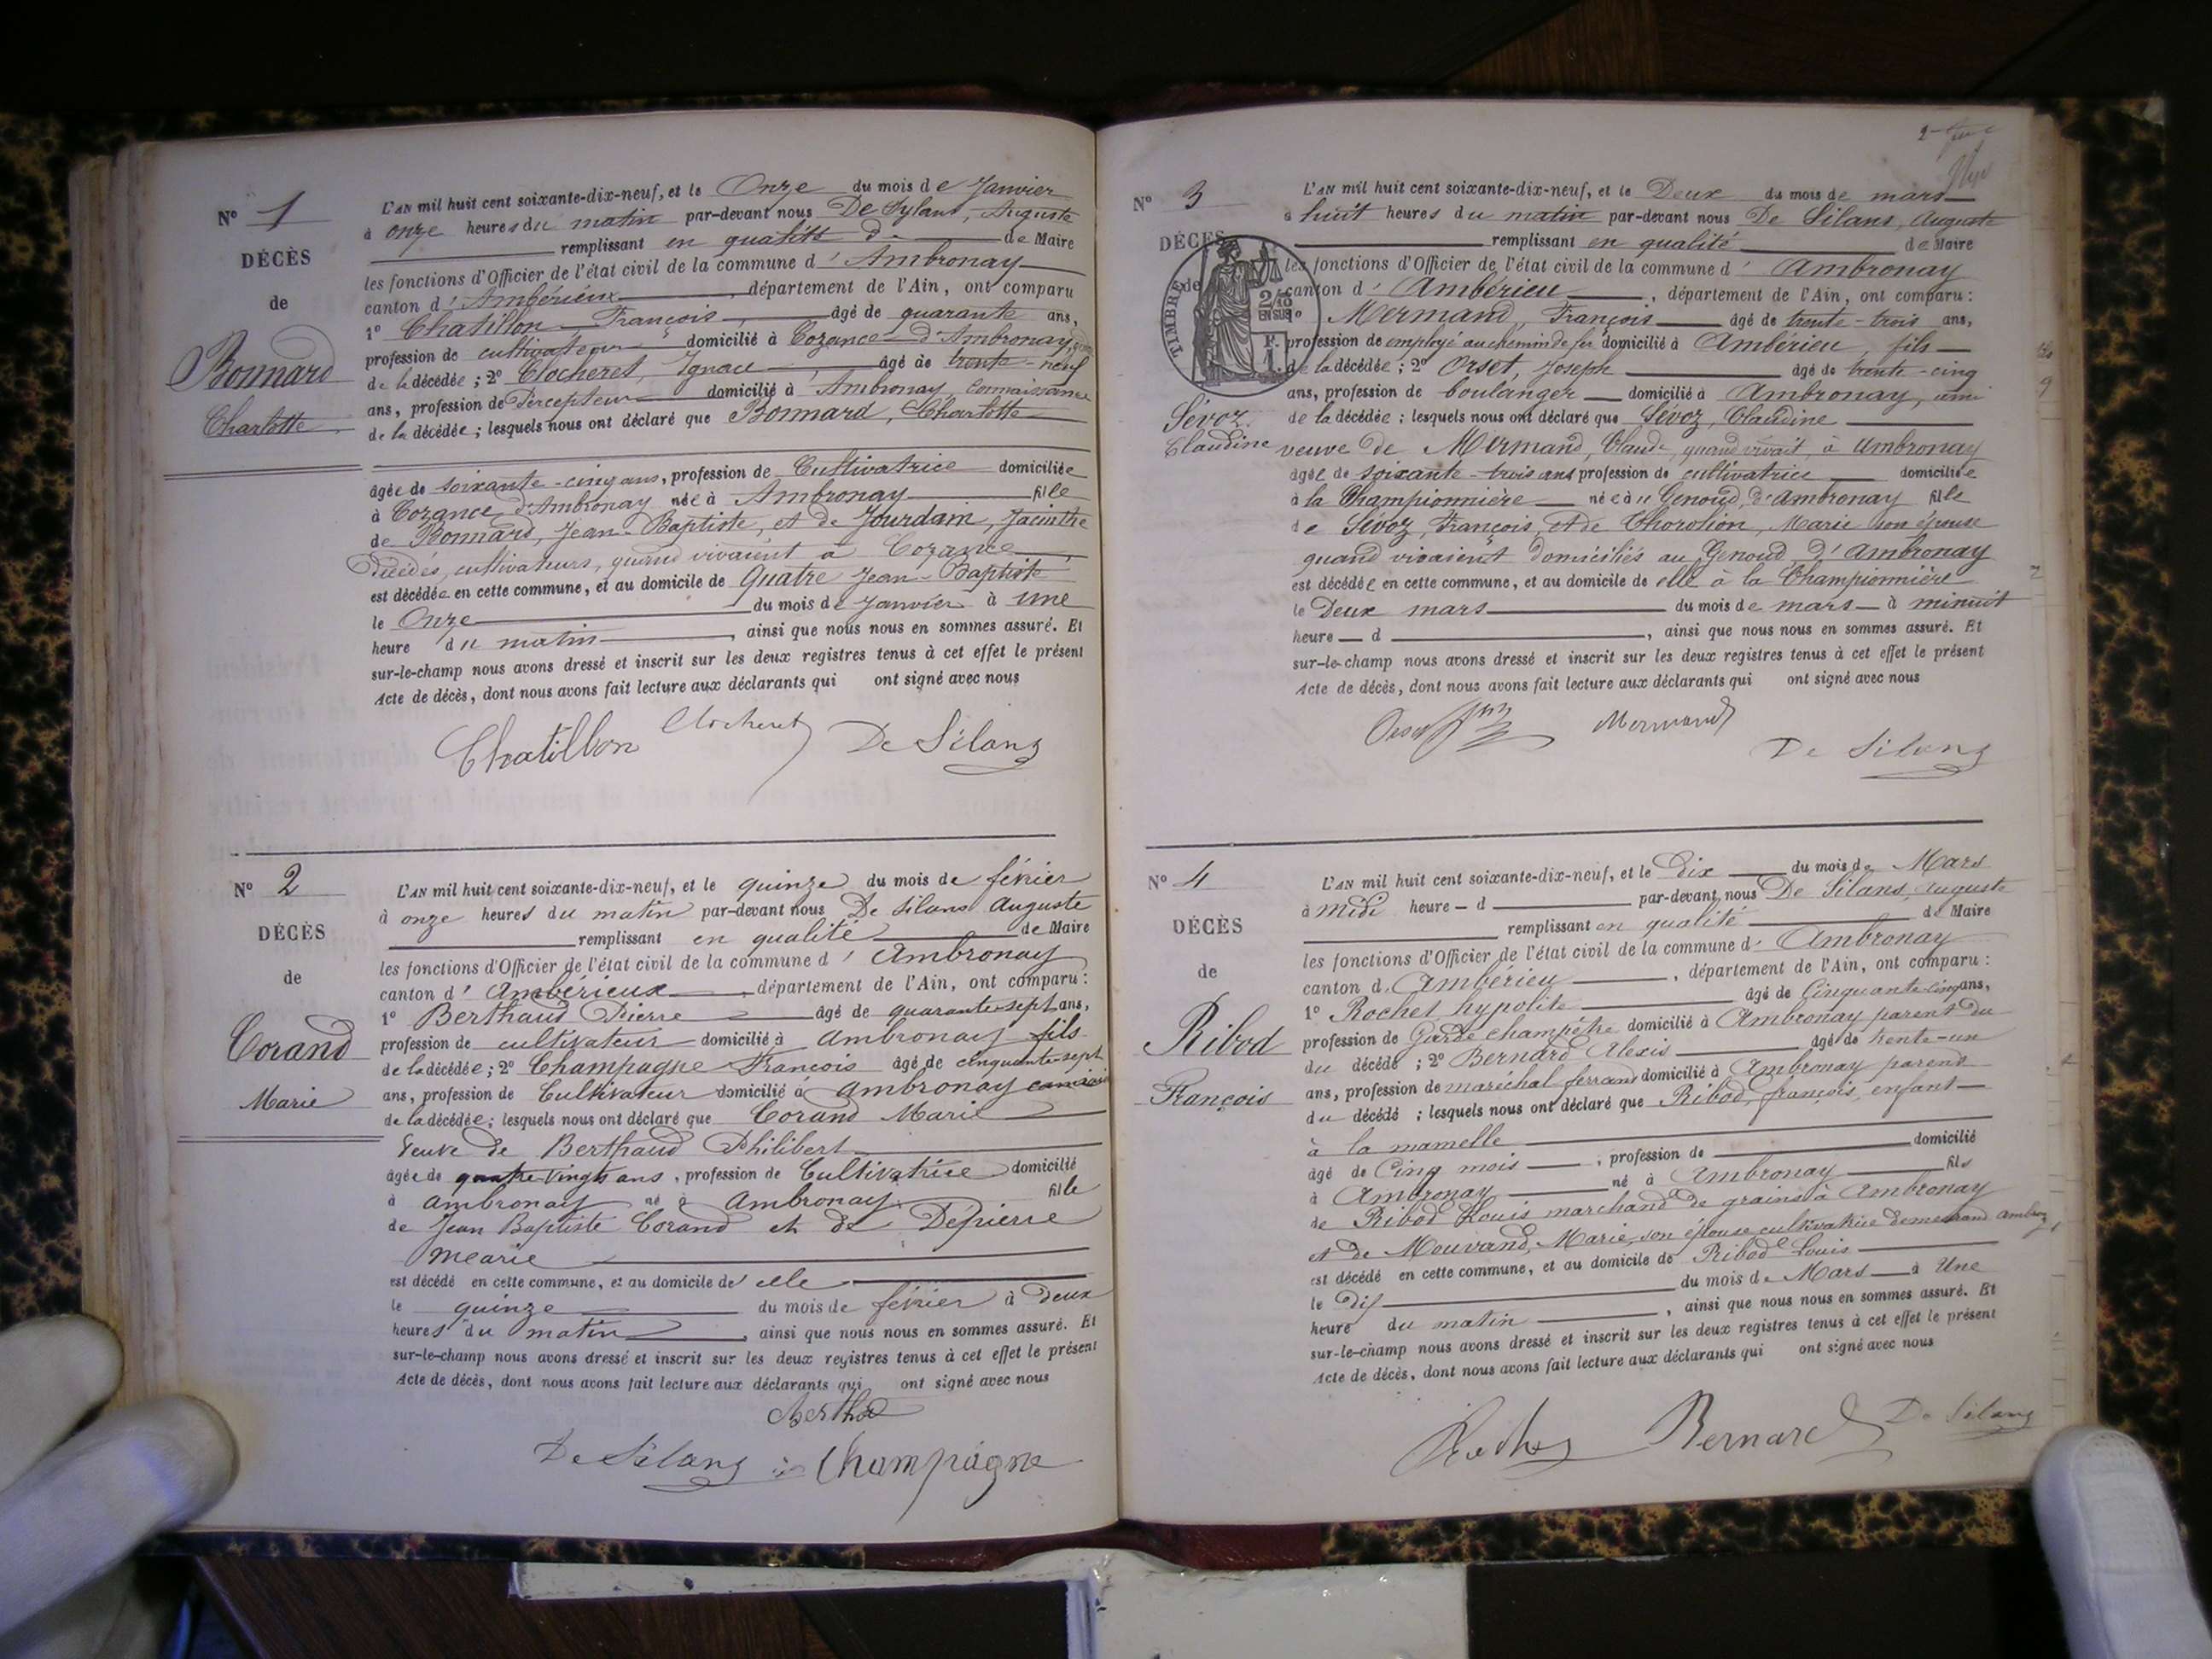 N° 1
DÉCÈS
de
Bonnard
Charlotte
L'AN mil huit cent soixante-dix-neuf, et le Onze du mois de Janvier
à onze heures du matin par-devant nous De Sylans, Auguste
remplissant en qualité de Maire
les fonctions d'Officier de l'état civil de la commune d'Ambronay
canton d'Ambérieux, département de l'Ain, ont comparu
1° Chatillon François, âgé de quarante ans,
profession de cultivateur domicilié à Cozance d'Ambronay
de la décédée; 2° Clocheret, Ignace, âgé de trente-neuf
ans, profession de Percepteur domicilié à Ambronay, Connaissance
de la décédée; lesquels nous ont déclaré que Bonnard, Charlotte
âgée de soixante-cinq ans, profession de Cultivatrice domiciliée
à Cozance, d'Ambronay née à Ambronay fille
de Bonnard, Jean-Baptiste, et de Jourdam, Jacinthe
Décédés, cultivateurs, quand vivaient à Cozance
est décédée en cette commune, et au domicile de Quatre Jean-Baptiste
le Onze du mois de Janvier à une
heure du matin, ainsi que nous nous en sommes assuré. Et
sur-le-champ nous avons dressé et inscrit sur les deux registres tenus à cet effet le présent
Acte de décès, dont nous avons fait lecture aux déclarants qui ont signé avec nous
Chatillon Clocheret De Silans
N° 2
DÉCÈS
de
Corand
Marie
L'AN mil huit cent soixante-dix-neuf, et le quinze du mois de février
à onze heures du matin par-devant nous De Silans Auguste
remplissant en qualité de Maire
les fonctions d'Officier de l'état civil de la commune d'Ambronay
canton d'Ambérieux, département de l'Ain, ont comparu:
1° Berthaud Pierre âgé de quarante-sept ans,
profession de cultivateur domicilié à Ambronay fils
de la décédée; 2° Champagne Francois âgé de cinquante-sept
ans, profession de Cultivateur domicilié à Ambronay
de la décédée; lesquels nous ont déclaré que Corand Marie
Veuve de Berthaud Philibert
âgée de quatre-vingts ans, profession de Cultivatrice domicilié
à Ambronay né à Ambronay fille
de Jean Baptiste Corand et de Dépierre
Marie
est décédé en cette commune, et au domicile de elle
le quinze du mois de février à Deux
heures du matin, ainsi que nous nous en sommes assuré. Et
sur-le-champ nous avons dressé et inscrit sur les deux registres tenus à cet effet le présent
Acte de décès, dont nous avons fait lecture aux déclarants qui ont signé avec nous
De Silans Champagne
N° 3
DÉCÈS
de
Sévoz
Claudine
TIMBRE
2/10
EN SUS
F.
1
L'AN mil huit cent soixante-dix-neuf, et le Deux du mois de mars
à huit heures du matin par-devant nous De Silans, Auguste
remplissant en qualité de Maire
les fonctions d'Officier de l'état civil de la commune d'Ambronay
canton d'Ambérieu, département de l'Ain, ont comparu:
Mermand, François âgé de trente-trois ans,
profession de employé au chemin de fer domicilié à Ambérieu, fils
de la décédée; 2° Orset, Joseph âgé de trente-cinq
ans, profession de boulanger domicilié à Ambronay, ami
de la décédée: lesquels nous ont déclaré que Sévoz, Claudine
veuve de Mermand, Claude, quand vivait, à Ambronay
âgée de soixante-trois ans profession de cultivatrice domiciliée
à la Championnière née au Genoud, d'Ambronay fille
de Sévoz, François, et de Chorolion, Marie son épouse
quand vivaient domiciliés au Genoud d'Ambronay
est décédée en cette commune, et au domicile de elle à la Championnière
le Deux mars du mois de mars à minuit
heure d, ainsi que nous nous en sommes assuré. Et
sur-le-champ nous avons dressé et inscrit sur les deux registres tenus à cet effet le présent
Acte de décès, dont nous avons fait lecture aux déclarants qui ont signé avec nous
Orset Mermand
De Silans
N° 4
DÉCÈS
de
Ribod
François
L'AN mil huit cent soixante-dix-neuf, et le Dix du mois de Mars
à midi heure d par-devant nous De Silans, Auguste
remplissant en qualité de Maire
les fonctions d'Officier de l'état civil de la commune d'Ambronay
canton d'Ambérieu, département de l'Ain, ont comparu:
1° Rochet hypolite âgé de Cinquante-cinq ans,
profession de Garde champêtre domicilié à Ambronay parent du
du décédé; 2° Bernard Alexis âgé de trente-un
ans, profession de maréchal ferrant domicilié à Ambronay parent
du décédé; lesquels nous ont déclaré que Ribod, françois, enfant
à la mamelle
âgé de Cinq mois, profession de domicilié
à Ambronay né à Ambronay fils
de Ribod Louis marchand de grains à Ambronay
et de Mouvand, Marie, son épouse cultivatrice demeurand
est décédé en cette commune, et au domicile de Ribod Louis
le Dix du mois de Mars à Une
heure du matin, ainsi que nous nous en sommes assuré. Et
sur-le-champ nous avons dressé et inscrit sur les deux registres tenus à cet effet le présent
Acte de décès, dont nous avons fait lecture aux déclarants qui ont signé avec nous
Bernard De Silans